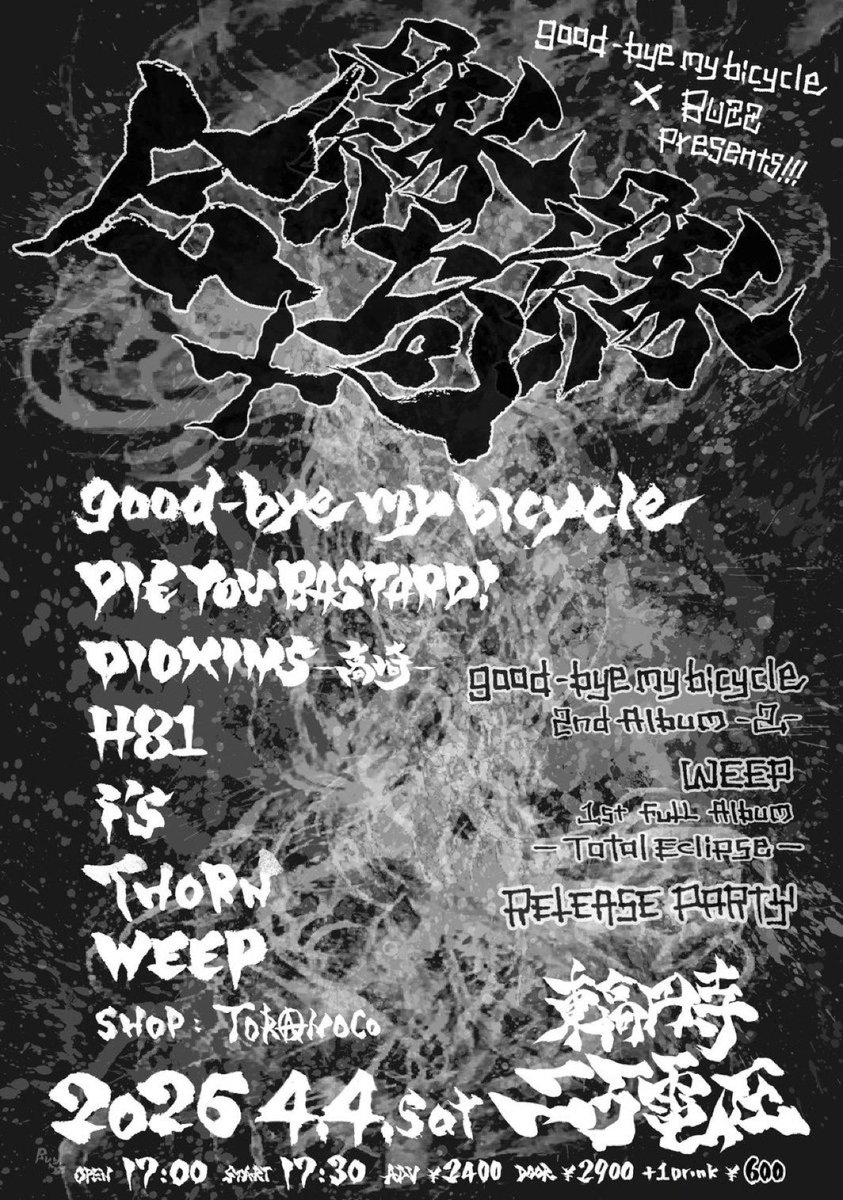 good-bye my bicycle
× BUZZ
presents!!!
合縁
奇縁
good-bye my bicycle
DIE YOU BASTARD!
DIOXINS -高崎-
H81
i's
THORN
WEEP
SHOP:
good-bye my bicycle
2nd Album
WEEP
1st Full Album
-Total Eclipse-
RELEASE PARTY
東高円寺
二万電圧
2026 4.4.sat
OPEN 17:00 START 17:30 ADV ¥2400 DOOR ¥2900 +1Drink ¥600